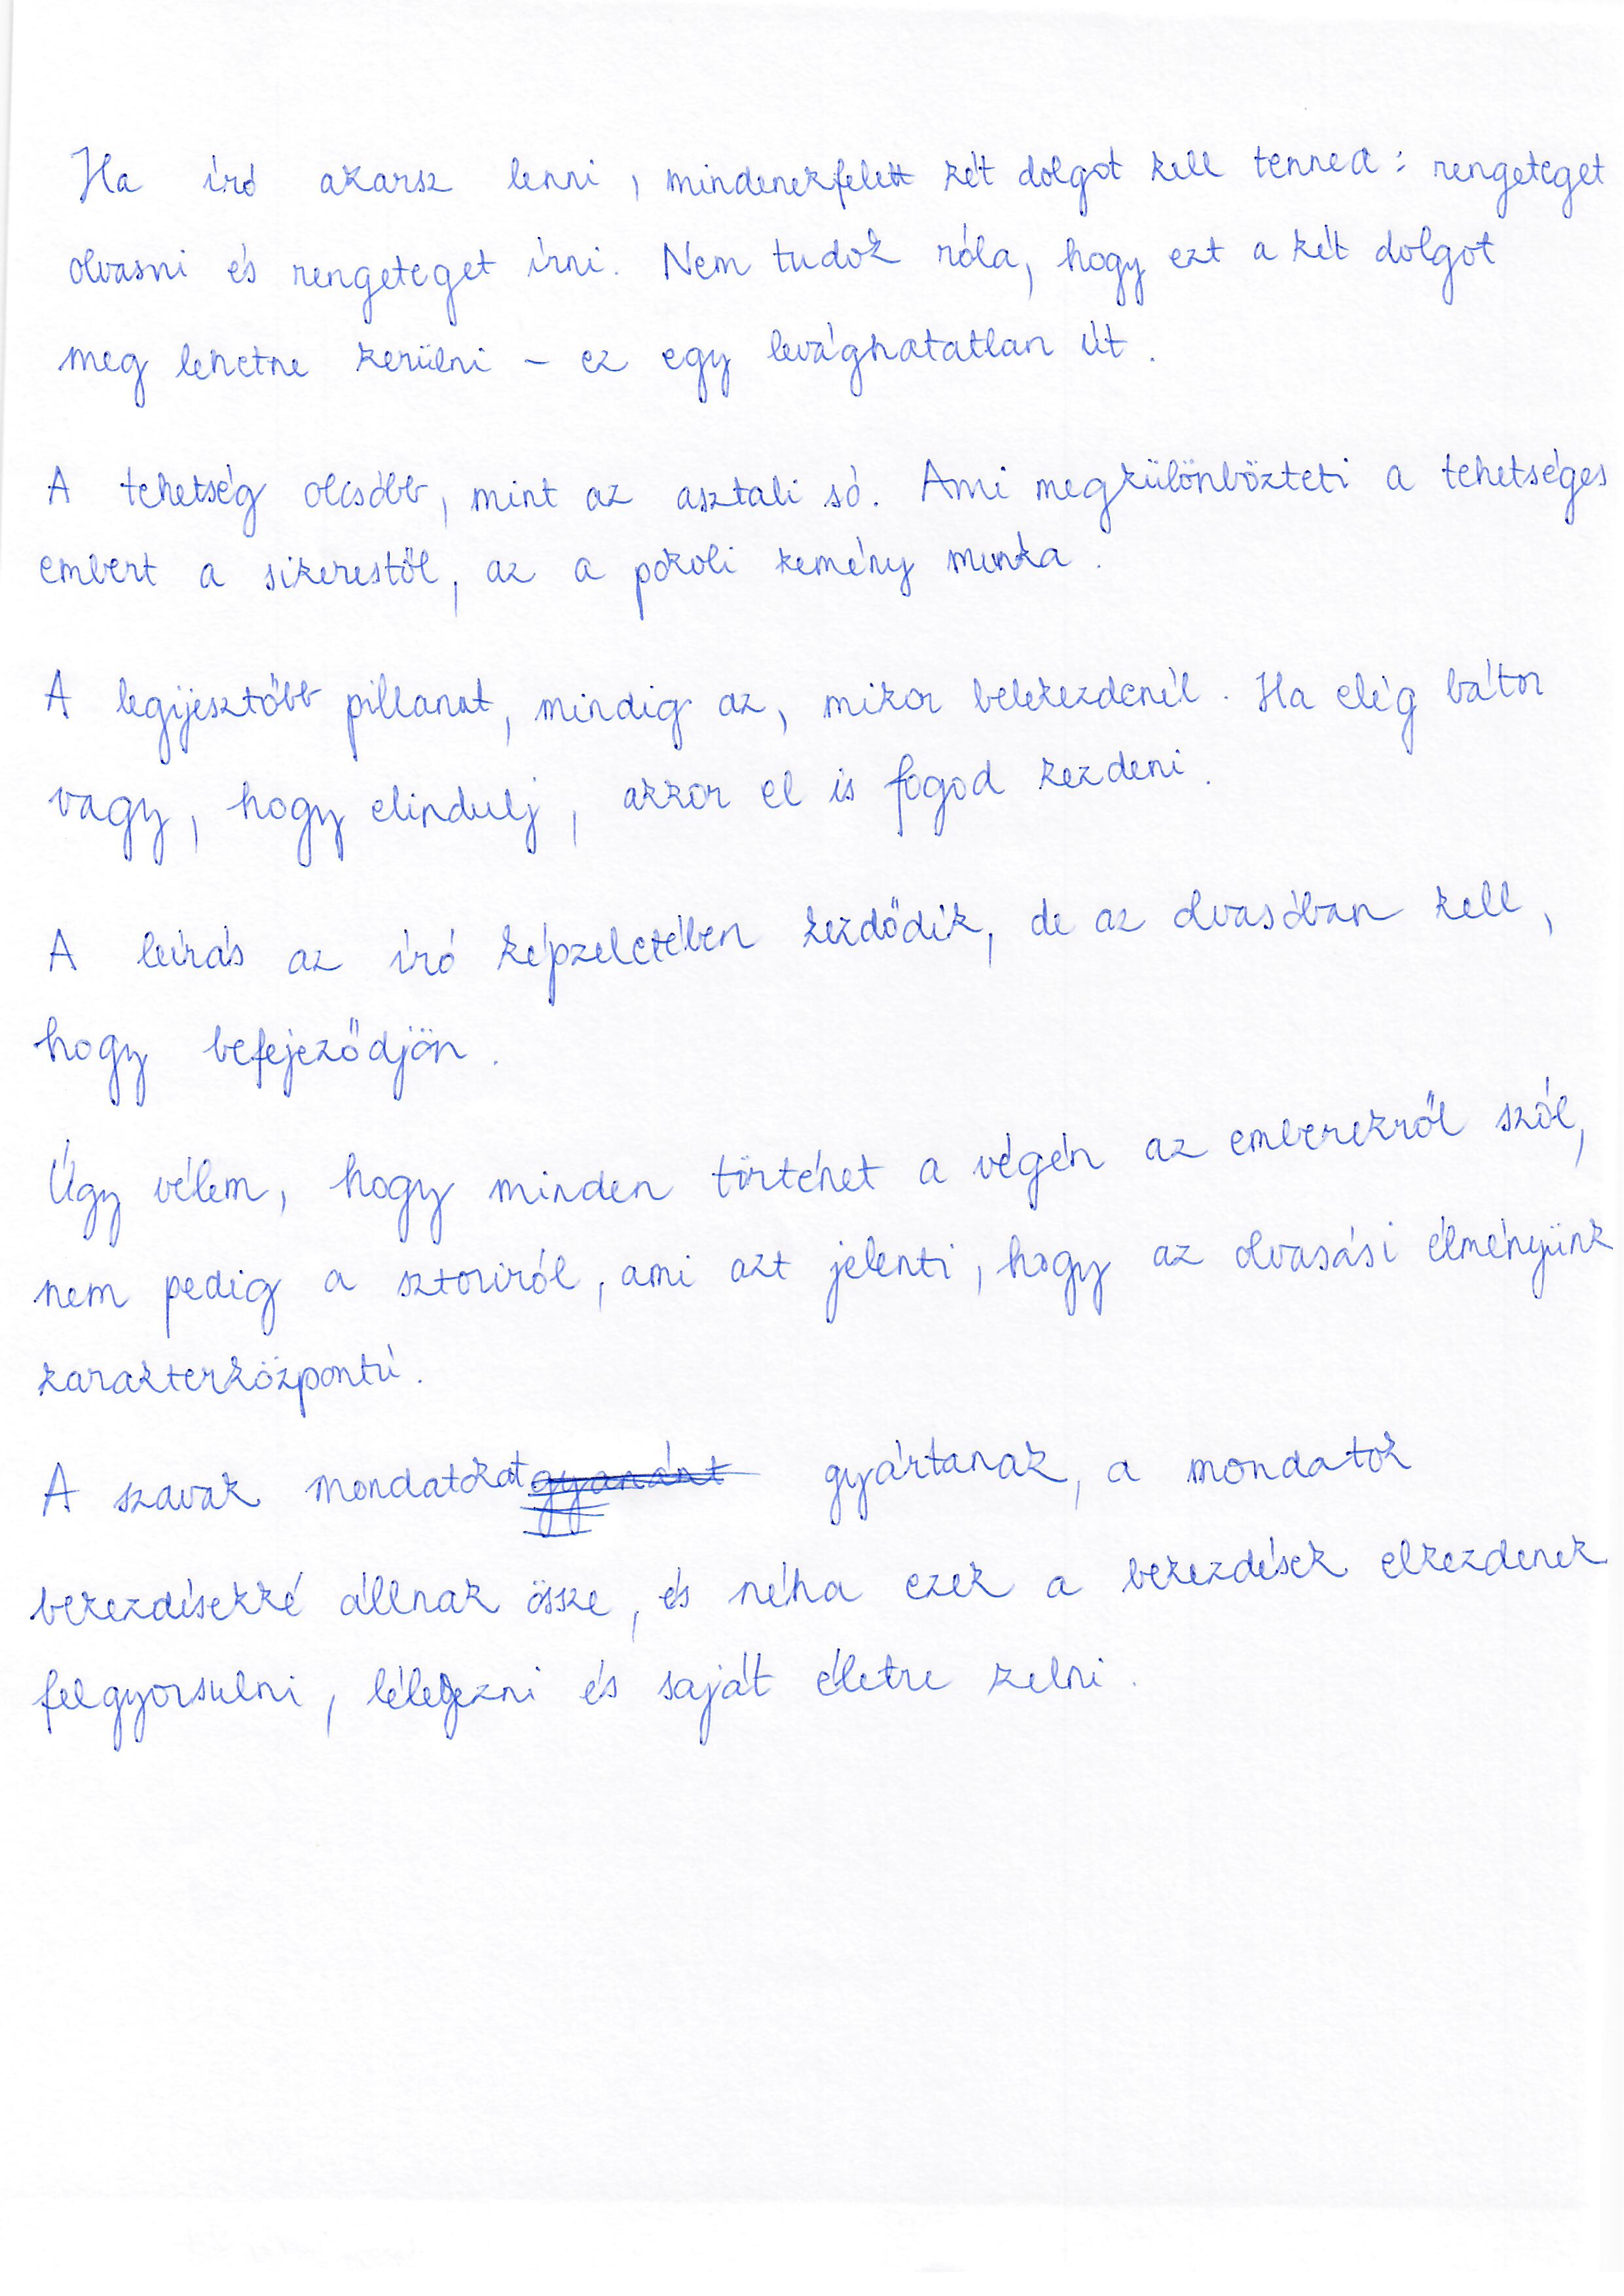 Ha író akarsz lenni, mindenekfelett két dolgot kell tenned: rengeteget
olvasni és rengeteget írni. Nem tudok róla, hogy ezt a két dolgot
meg lehetne kerülni – ez egy levághatatlan út.
A tehetség olcsóbb, mint az asztali só. Ami megkülönbözteti a tehetséges
embert a sikerestől, az a pokoli kemény munka.
A legijesztőbb pillanat, mindig az, mikor belekezdenél. Ha elég bátor
vagy, hogy elindulj, akkor el is fogod kezdeni.
A leírás az író képzeletében kezdődik, de az olvasóban kell,
hogy befejeződjön.
Úgy vélem, hogy minden történet a végén az emberekről szól,
nem pedig a sztoriról, ami azt jelenti, hogy az olvasási élményünk
karakterközpontú.
A szavak mondatokat gyanánt gyártanak, a mondatok
bekezdésekké állnak össze, és néha ezek a bekezdések elkezdenek
felgyorsulni, lélegezni és saját életre kelni.